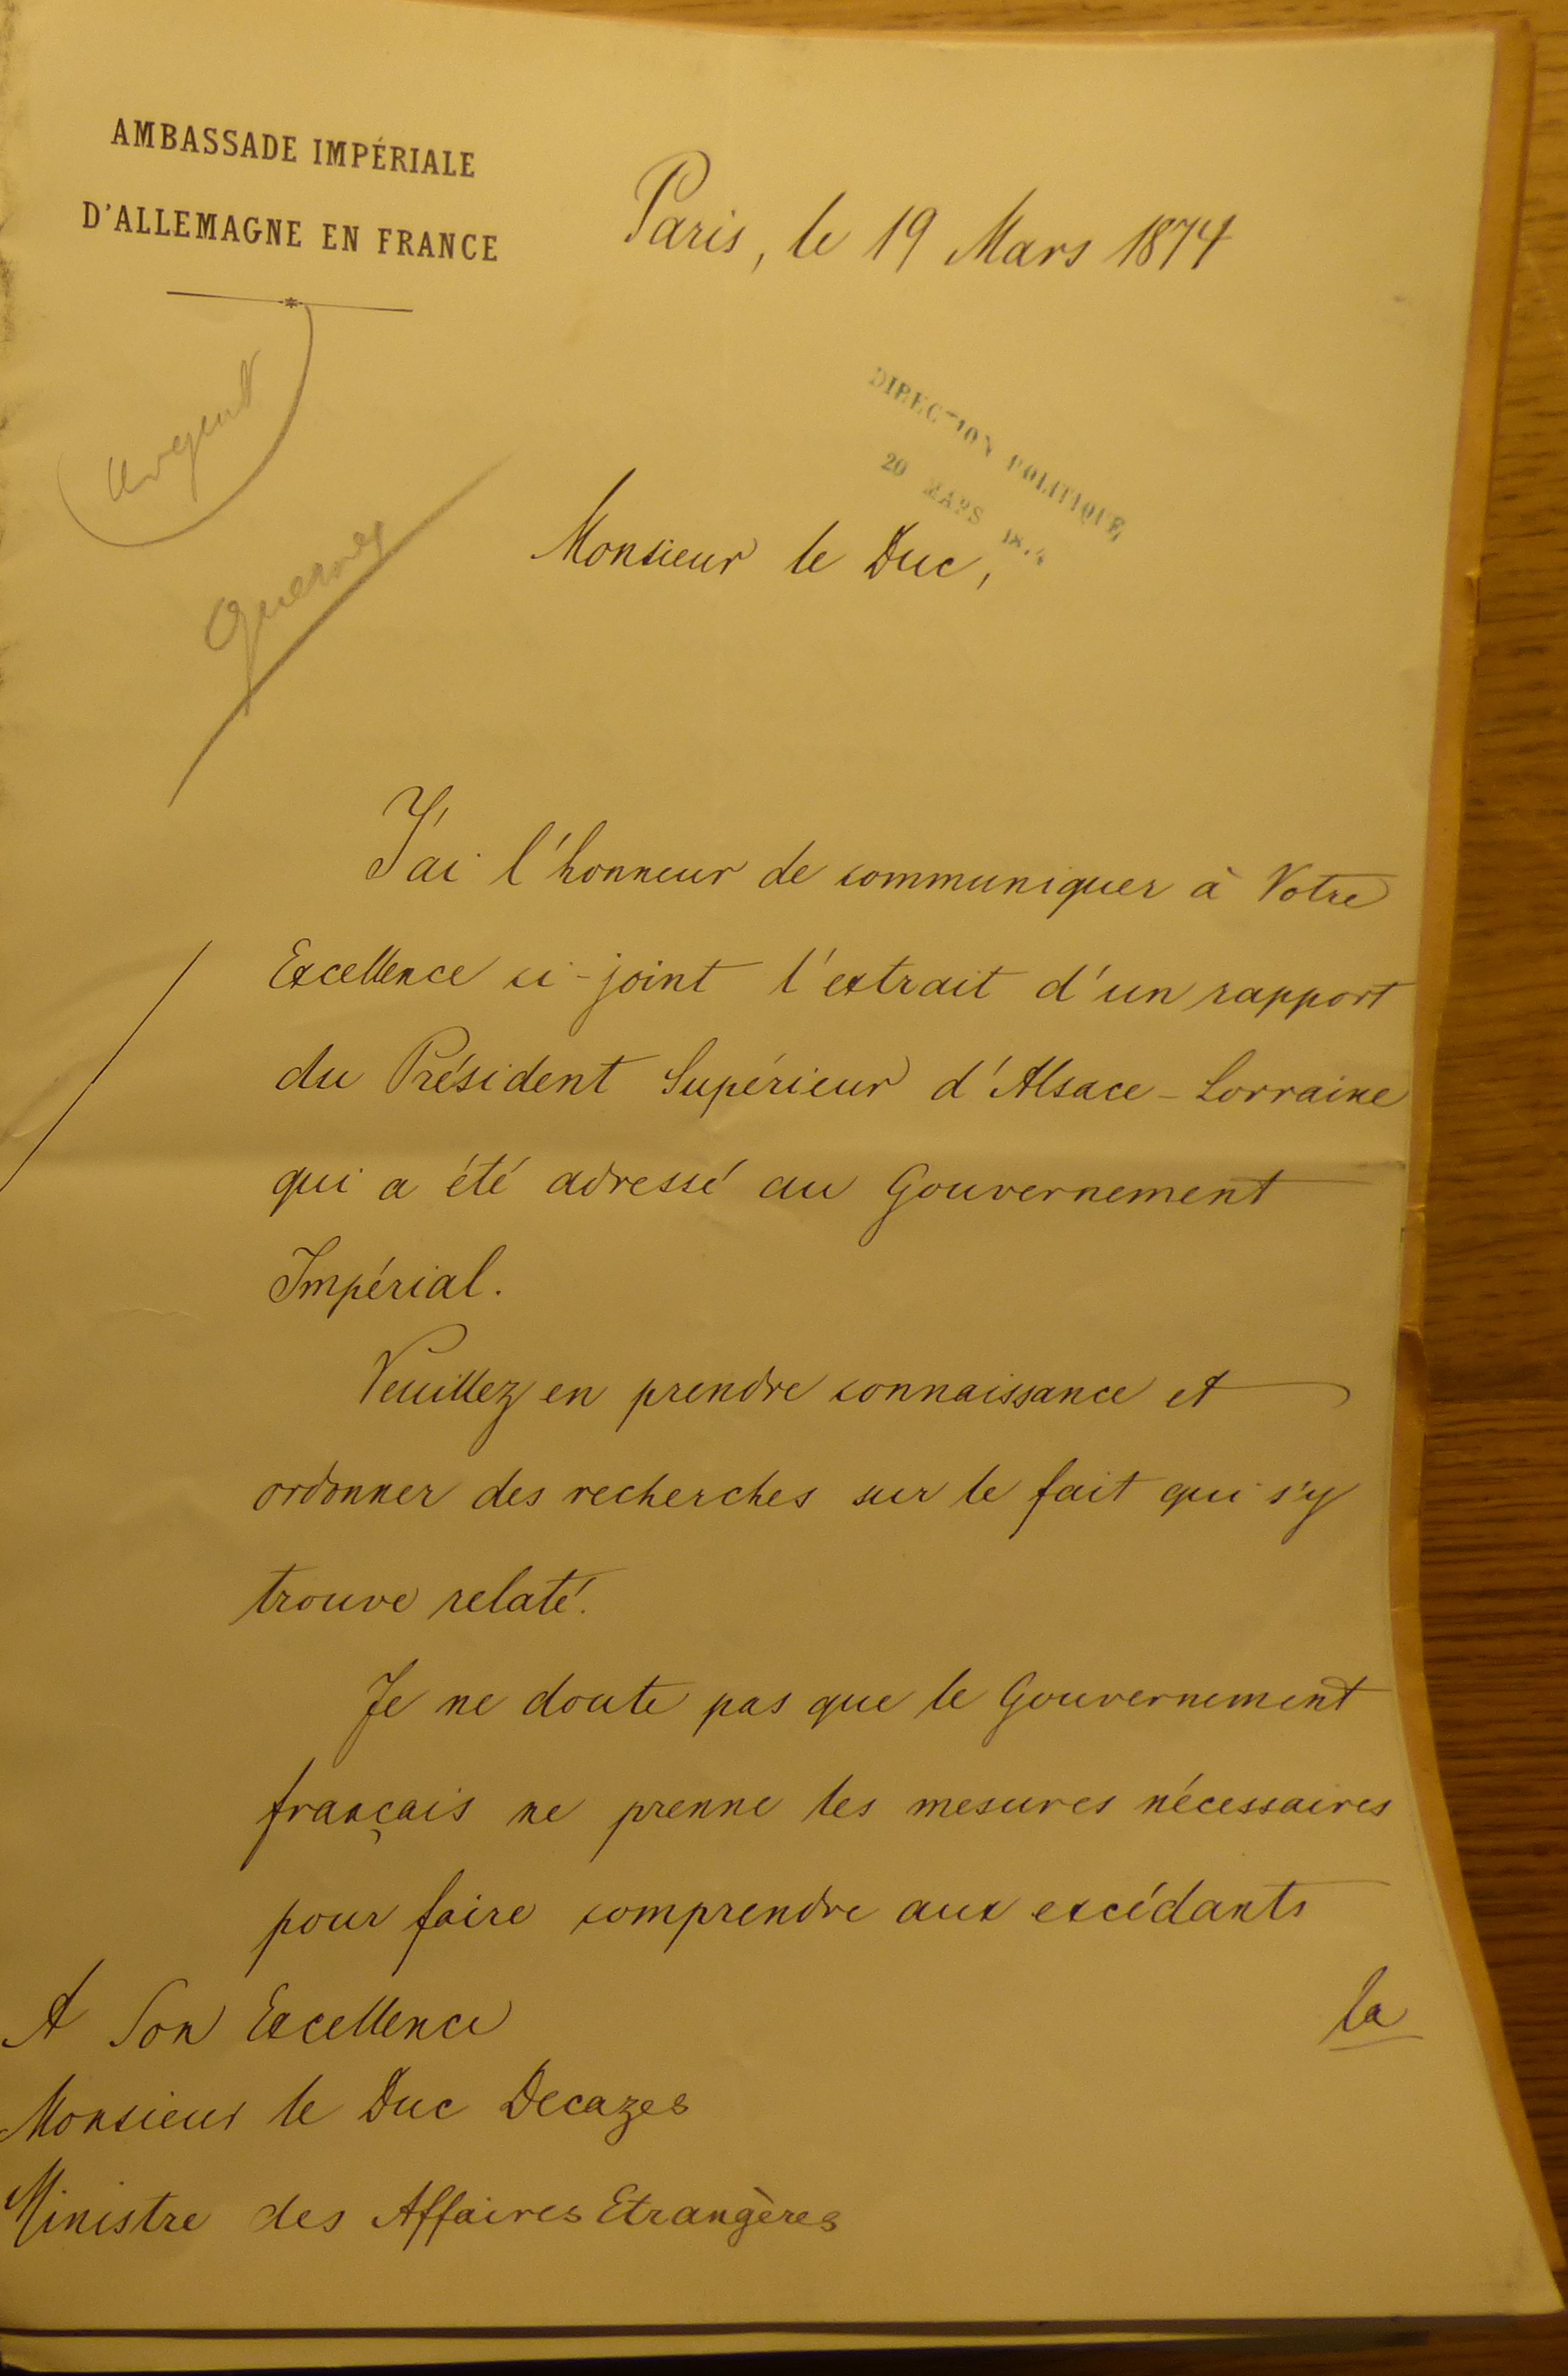 AMBASSADE IMPÉRIALE
D'ALLEMAGNE EN FRANCE
Paris, le 19 Mars 1874
Urgent
DIRECTION POLITIQUE
20 MARS 1874
Monsieur le Duc,
J'ai l'honneur de communiquer à Votre
Excellence ci-joint l'extrait d'un rapport
du Président Supérieur d'Alsace-Lorraine
qui a été adressé au Gouvernement
Impérial.
Veuillez en prendre connaissance et
ordonner des recherches sur le fait qui s'y
trouve relaté.
Je ne doute pas que le Gouvernement
français ne prenne les mesures nécessaires
pour faire comprendre aux excédants
la
A Son Excellence
Monsieur le Duc Decazes
Ministre des Affaires Etrangères